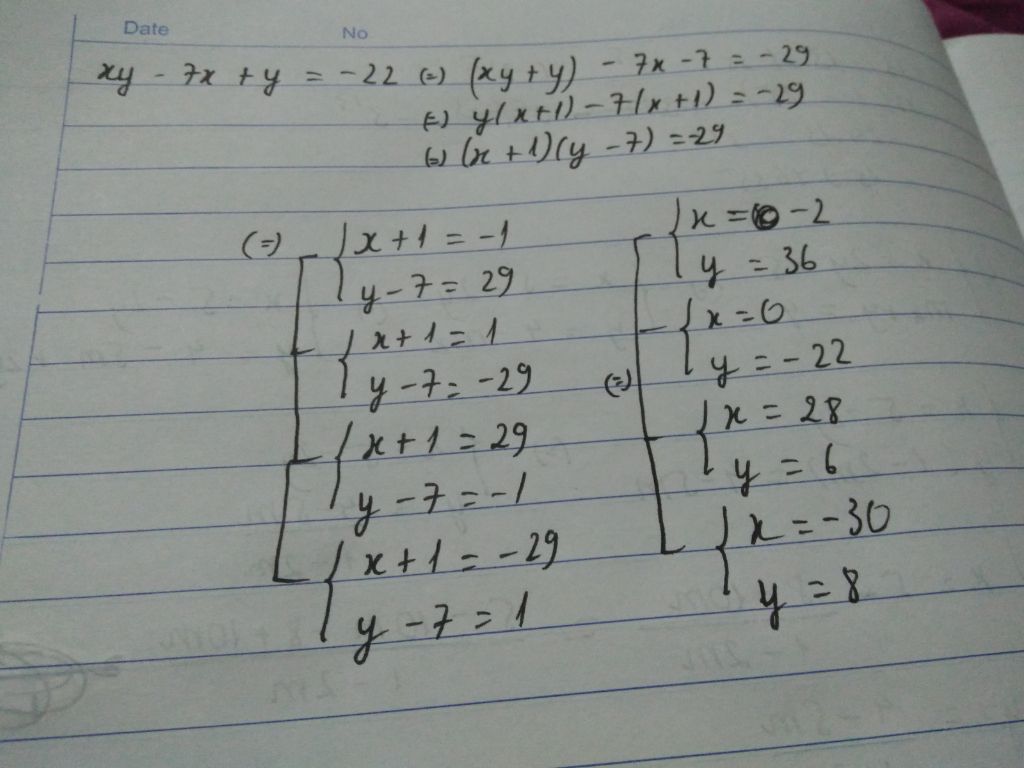 Date No
xy - 7x + y = -22 (=) (xy + y) - 7x - 7 = -29
(=) y(x+1) - 7(x+1) = -29
(=) (x + 1)(y - 7) = -29
(=) { x + 1 = -1
y - 7 = 29
{ x + 1 = 1
y - 7 = -29
{ x + 1 = 29
y - 7 = -1
{ x + 1 = -29
y - 7 = 1
(=) { x = -2
y = 36
{ x = 0
y = -22
{ x = 28
y = 6
{ x = -30
y = 8